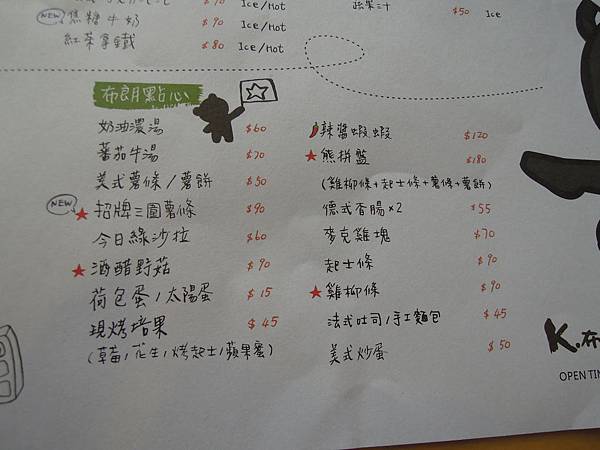 $90 Ice/Hot
NEW 焦糖牛奶 $90 Ice/Hot
紅茶拿鐵 $80 Ice/Hot
蔬果汁 $50 Ice
布朗點心
奶油濃湯 $60
蕃茄牛湯 $70
美式薯條/薯餅 $50
NEW ★招牌三圓薯條 $90
今日綠沙拉 $60
★酒醋野菇 $90
荷包蛋/太陽蛋 $15
現烤培果 $45
(草莓/花生/烤起士/蘋果蜜)
辣醬蝦蝦 $120
★熊拼盤 $180
(雞柳條+起士條+薯條+薯餅)
德式香腸×2 $55
麥克雞塊 $70
起士條 $90
★雞柳條 $90
法式吐司/手工麵包 $45
美式炒蛋 $50
K.布
OPEN TIN